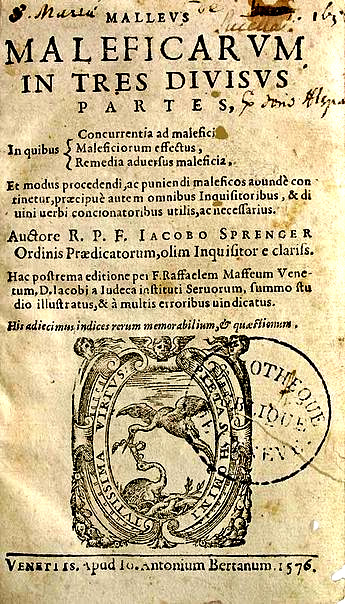 S. Maria
MALLEVS
MALEFICARVM
IN TRES DIVISVS
PARTES,
In quibus { Concurrentia ad malefici
Maleficiorum effectus,
Remedia aduersus maleficia,
Et modus procedendi, ac puniendi maleficos abundè con
tinetur, præcipuè autem omnibus Inquisitoribus, & di
uini uerbi concionatoribus utilis, ac necessarius.
Auctore R. P. F. IACOBO SPRENGER
Ordinis Prædicatorum, olim Inquisitore clariss.
Hac postrema editione per F. Raffaelem Maffeum Vene-
tum, D. Iacobi a Iudeca instituti Seruorum, summo stu
dio illustratus, & à multis erroribus uindicatus.
His adiecimus indices rerum memorabilium, & quæstionum.
PIETAS HOMINI
TVTISSIMA VIRTVS
OTHEQUE
LIQUE
VENETIIS, Apud Io. Antonium Bertanum. 1576.